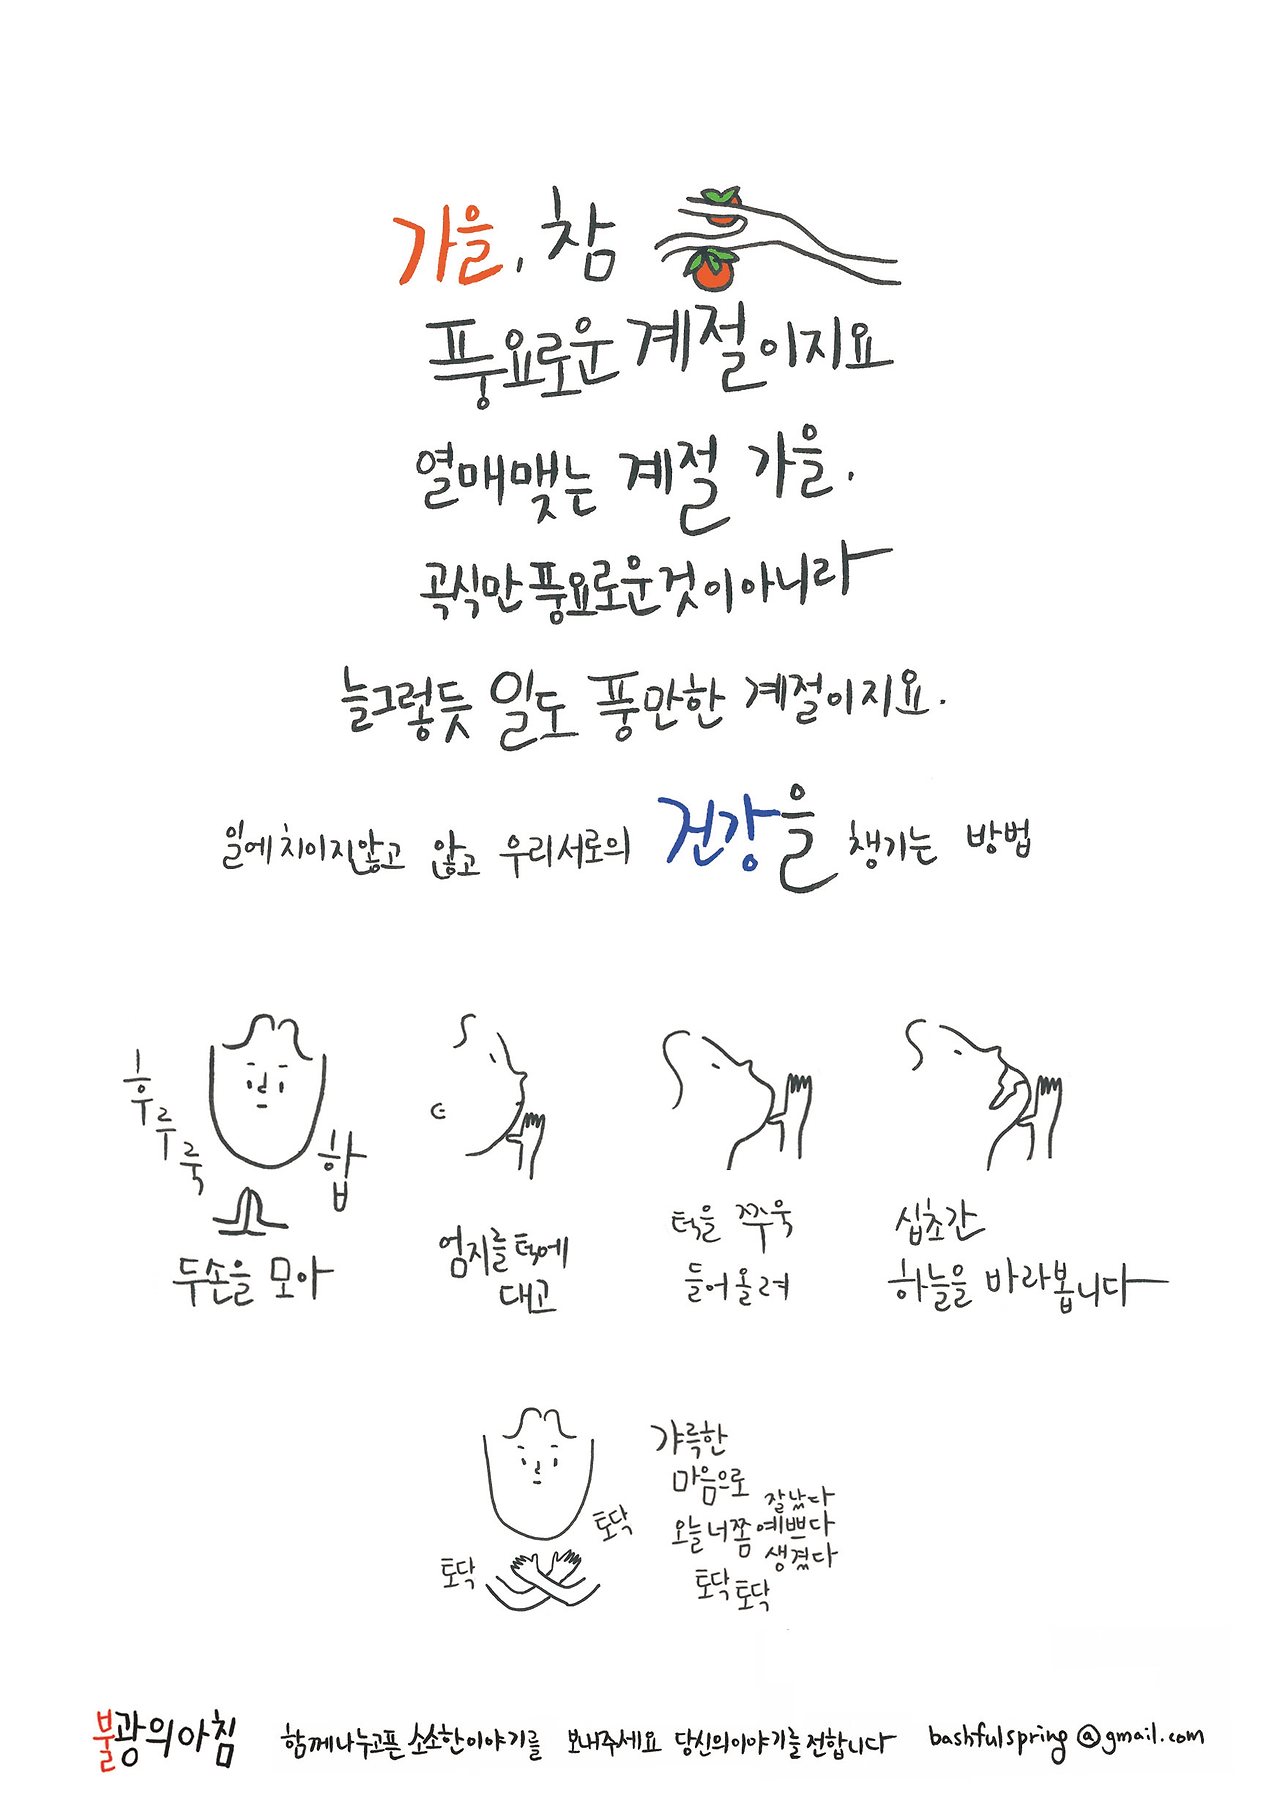 가을, 참
풍요로운 계절이지요
열매맺는 계절 가을.
곡식만 풍요로운것이아니라
늘그렇듯 일도 풍만한 계절이지요.
일에치이지않고 않고 우리서로의 건강을 챙기는 방법
후루룩
합
두손을 모아
엄지를 턱에
대고
턱을 쭈욱
들어올려
십초간
하늘을 바라봅니다
토닥
토닥
갸륵한
마음으로
오늘 너 쫌
잘났다
예쁘다
생겼다
토닥 토닥
불광의아침
함께나누고픈 소소한이야기를 보내주세요 당신의이야기를 전합니다 bashfulspring@gmail.com